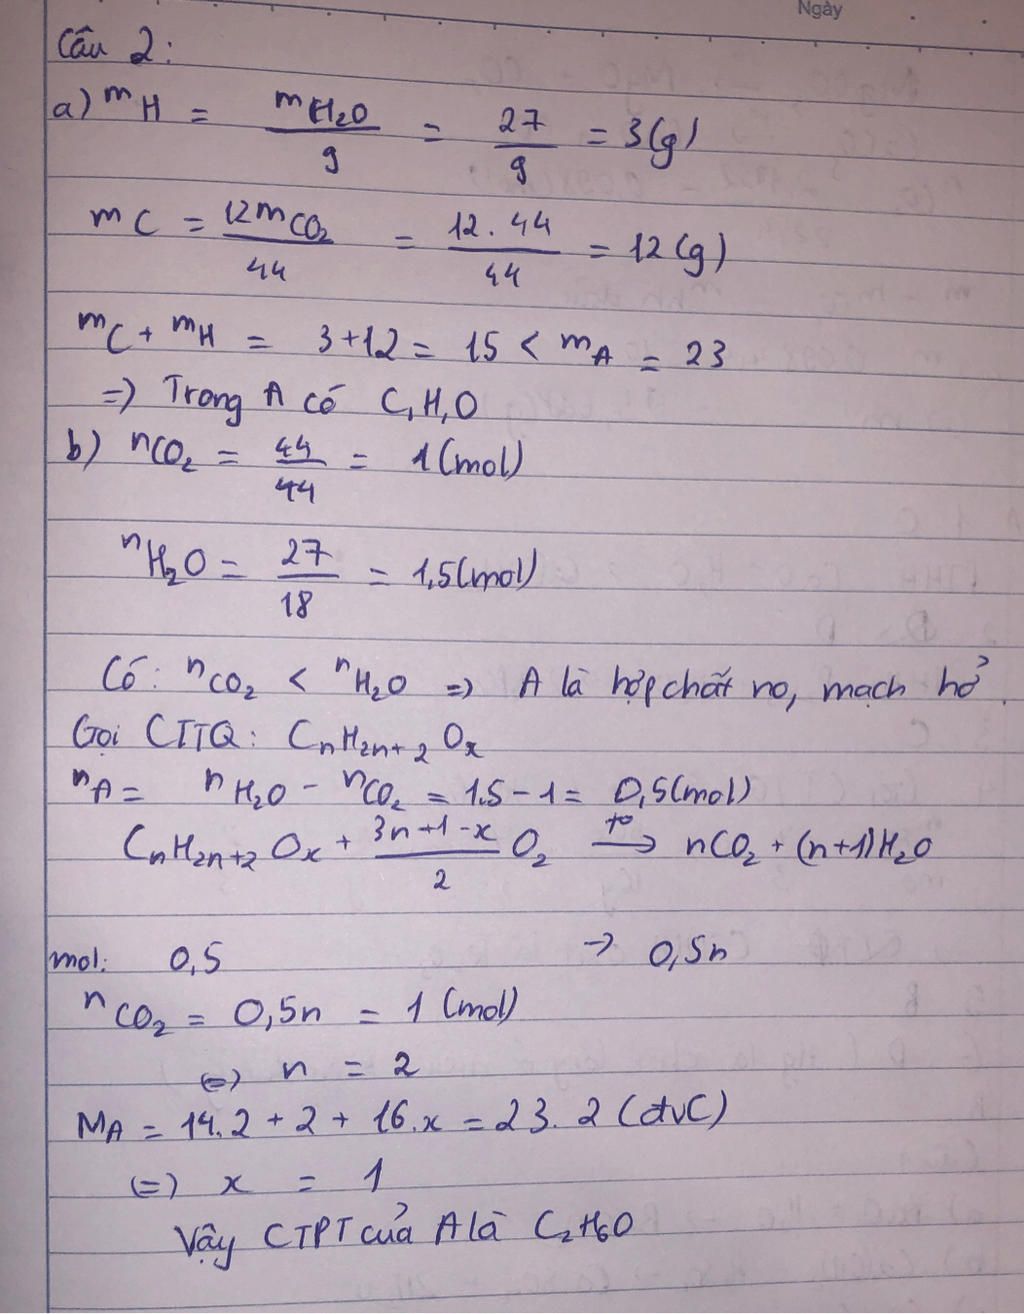 Ngày
Câu 2:
a) mH = mH2O / 9 = 27 / 9 = 3(g)
mC = 12mCO2 / 44 = 12.44 / 44 = 12(g)
mC + mH = 3+12 = 15 < mA = 23
=) Trong A có C,H,O
b) nCO2 = 44 / 44 = 1(mol)
nH2O = 27 / 18 = 1,5(mol)
Có: nCO2 < nH2O =) A là hợp chất no, mạch hở.
Gọi CTTQ: CnH2n+2Ox
nA = nH2O - nCO2 = 1.5 - 1 = 0,5(mol)
CnH2n+2Ox + 3n+1-x / 2 O2 t° → nCO2 + (n+1)H2O
mol: 0,5 → 0,5n
nCO2 = 0,5n = 1(mol)
(=) n = 2
MA = 14.2 + 2 + 16.x = 23.2 (đvC)
(=) x = 1
Vậy CTPT của A là C2H6O